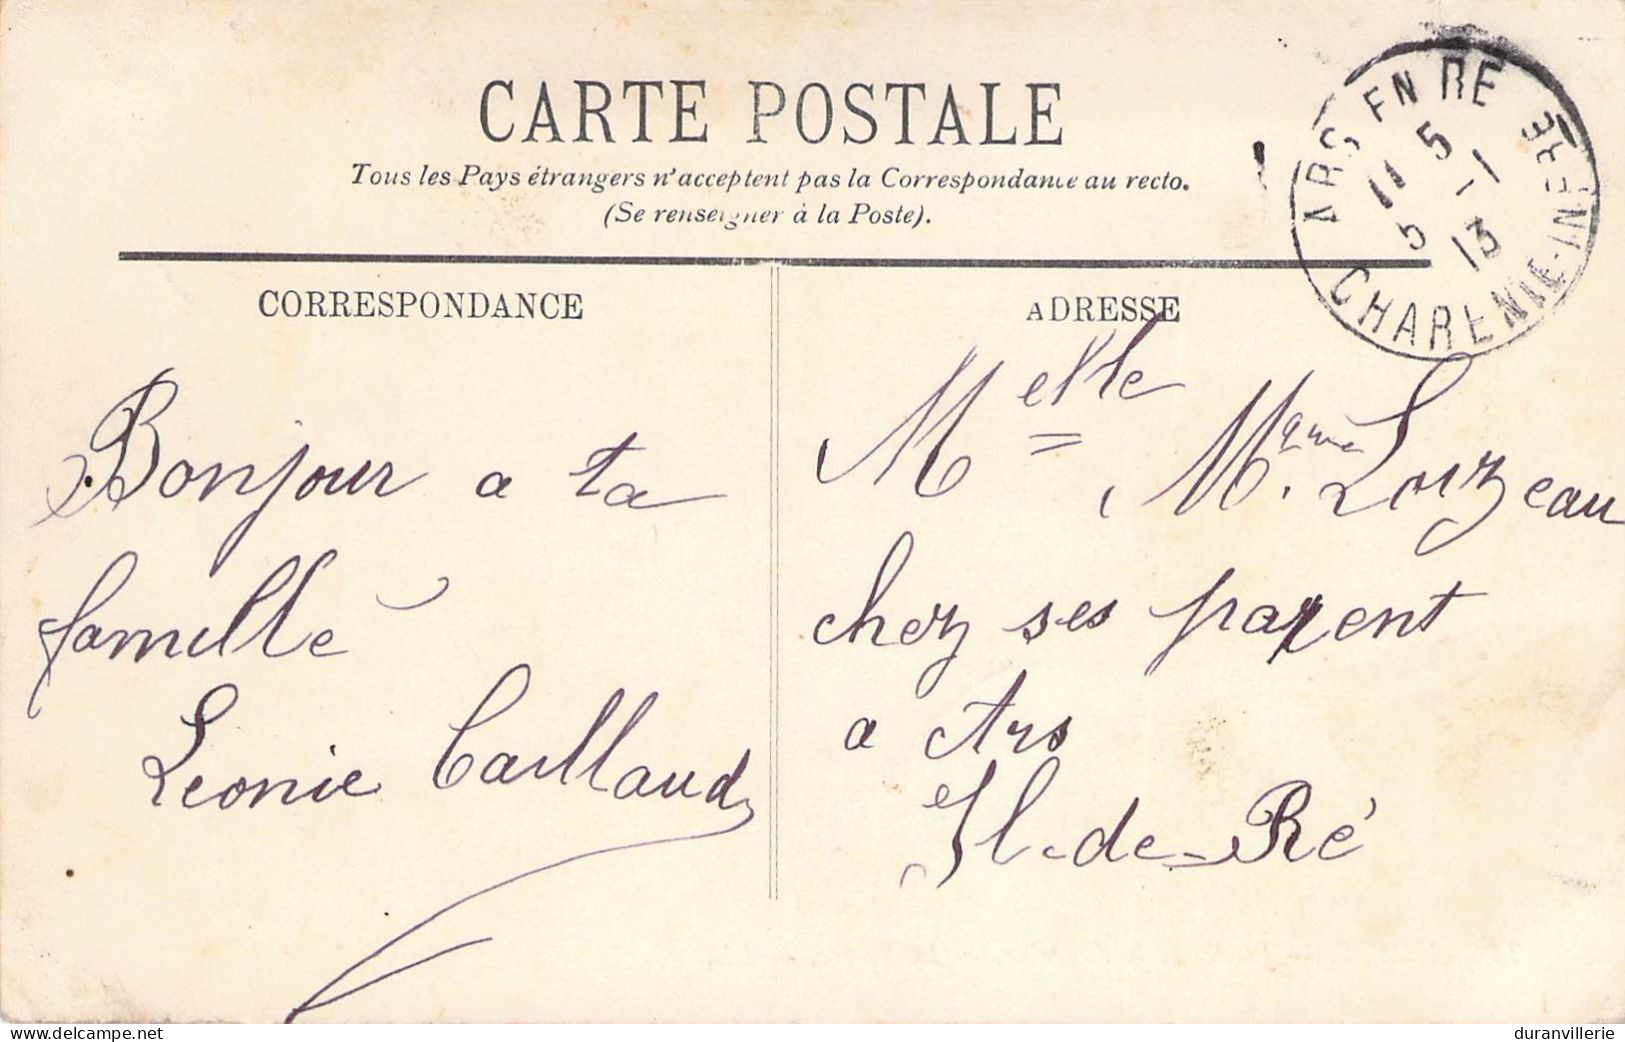 CARTE POSTALE
Tous les Pays étrangers n'acceptent pas la Correspondance au recto.
(Se renseigner à la Poste).
ARS EN RE
11 5
5 -1
13
CHARENTE-INF-RE
CORRESPONDANCE
Bonjour a ta
famille
Leonie Caillaud
ADRESSE
Melle Loizeau
chez ses parent
a Ars
Il-de-Ré
www.delcampe.net
duranvillerie